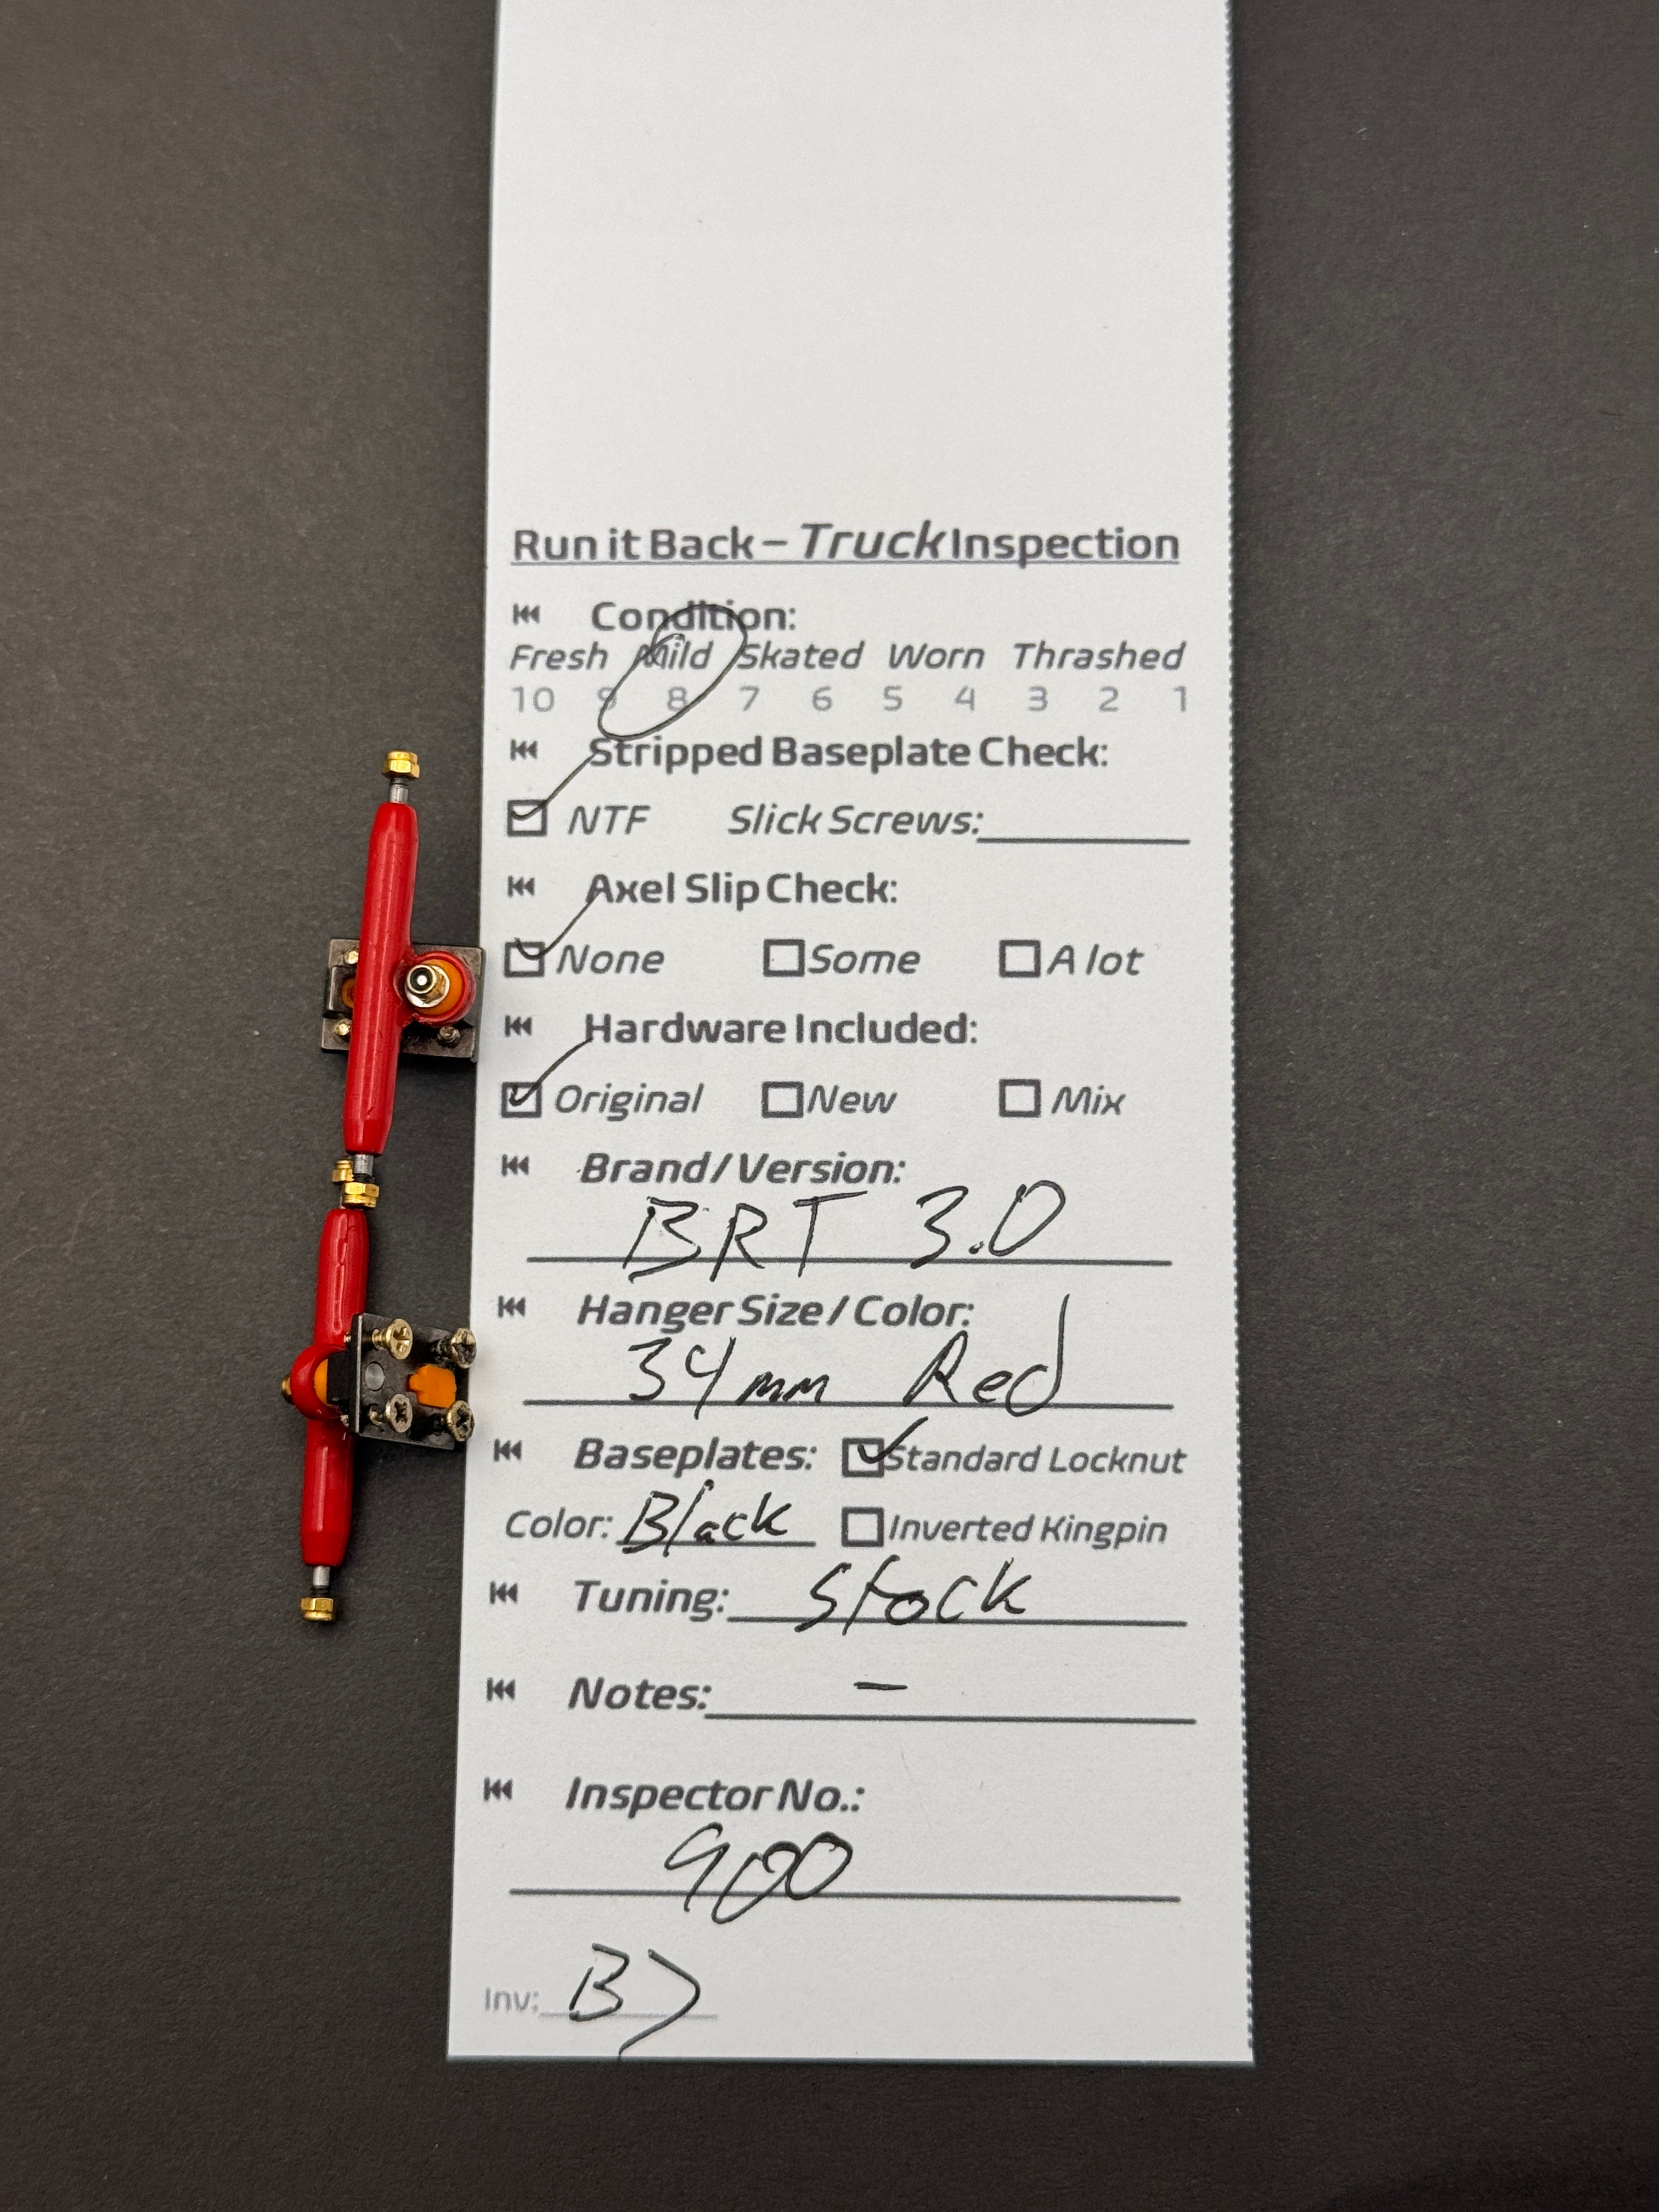 Run it Back – Truck Inspection
Condition:
Fresh Mild Skated Worn Thrashed
10 9 8 7 6 5 4 3 2 1
Stripped Baseplate Check:
NTF Slick Screws:
Axel Slip Check:
None Some A lot
Hardware Included:
Original New Mix
Brand / Version:
BRT 3.0
Hanger Size / Color:
34mm Red
Baseplates: Standard Locknut
Color: Black Inverted Kingpin
Tuning: Stock
Notes: –
Inspector No.:
900
Inv: B